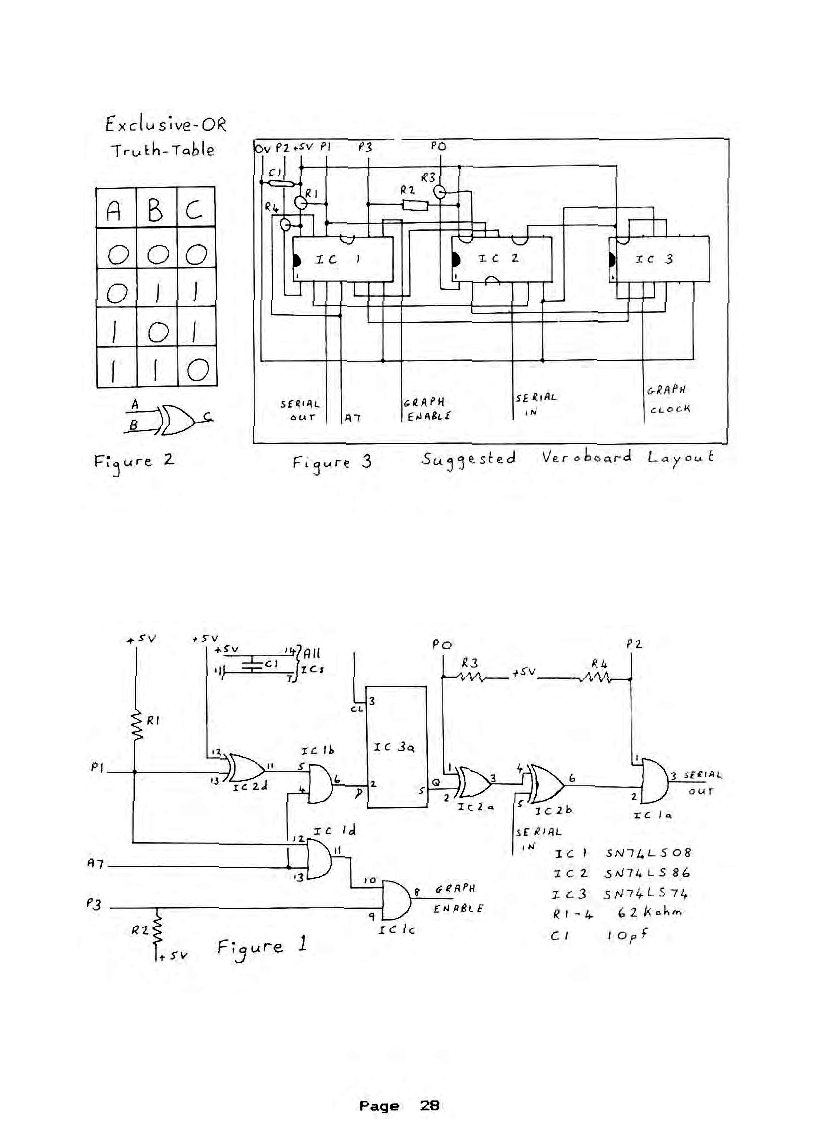 Exclusive-OR
Truth-Table
A B C
0 0 0
0 1 1
1 0 1
1 1 0
A
B
C
Figure 2
0V P2 +5V P1 P3 P0
C1
R1
R4
R2
R3
IC 1
IC 2
IC 3
1
1
1
SERIAL OUT
A7
GRAPH ENABLE
SERIAL IN
GRAPH CLOCK
Figure 3 Suggested Veroboard Layout
+5V
+5V
+5V 14
C1
7
All ICs
P0
P2
R3
+5V
R4
R1
CL 3
IC 3a
P1
12
13
11
IC2d
IC 1b
5
4
6
D 2
5 Q
1
2
3
IC2a
4
5
6
IC2b
1
2
3 SERIAL OUT
IC 1a
SERIAL IN
IC 1d
12
13
11
A7
10
9
8 GRAPH ENABLE
IC 1c
P3
R2
+5V
Figure 1
IC 1 SN74LS08
IC 2 SN74LS86
IC3 SN74LS74
R1-4 62Kohm
C1 10pf
Page 28